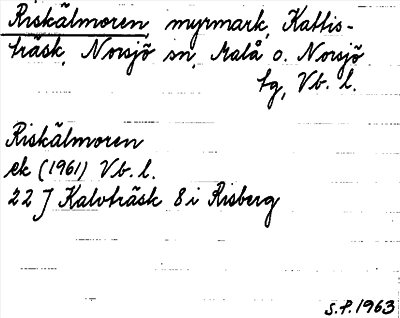 Riskälmoren, myrmark, Kattis-
träsk, Norsjö sn, Malå o. Norsjö
tg, Vb. l.
Riskälmoren
ek (1961) Vb. l.
22 J Kalvträsk 8 i Risberg
S.P. 1963